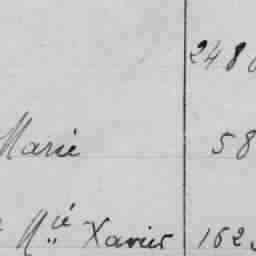 248
Marie 58
Mié Xavier 162